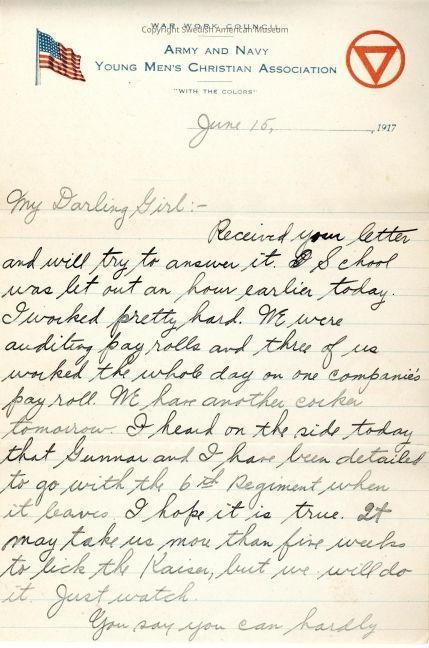 WAR WORK COUNCIL
Copyright Swedish American Museum
ARMY AND NAVY
YOUNG MEN'S CHRISTIAN ASSOCIATION
"WITH THE COLORS"
June 15, 1917
My Darling Girl:-
Received your letter
and will try to answer it. School
was let out an hour earlier today.
I worked pretty hard. We were
auditing pay rolls and three of us
worked the whole day on one companie's
pay roll. We have another corker
tomorrow. I heard on the side today
that Gunnar and I have been detailed
to go with the 6th Regiment when
it leaves. I hope it is true. It
may take us more than five weeks
to lick the Kaiser, but we will do
it. Just watch.
You say you can hardly